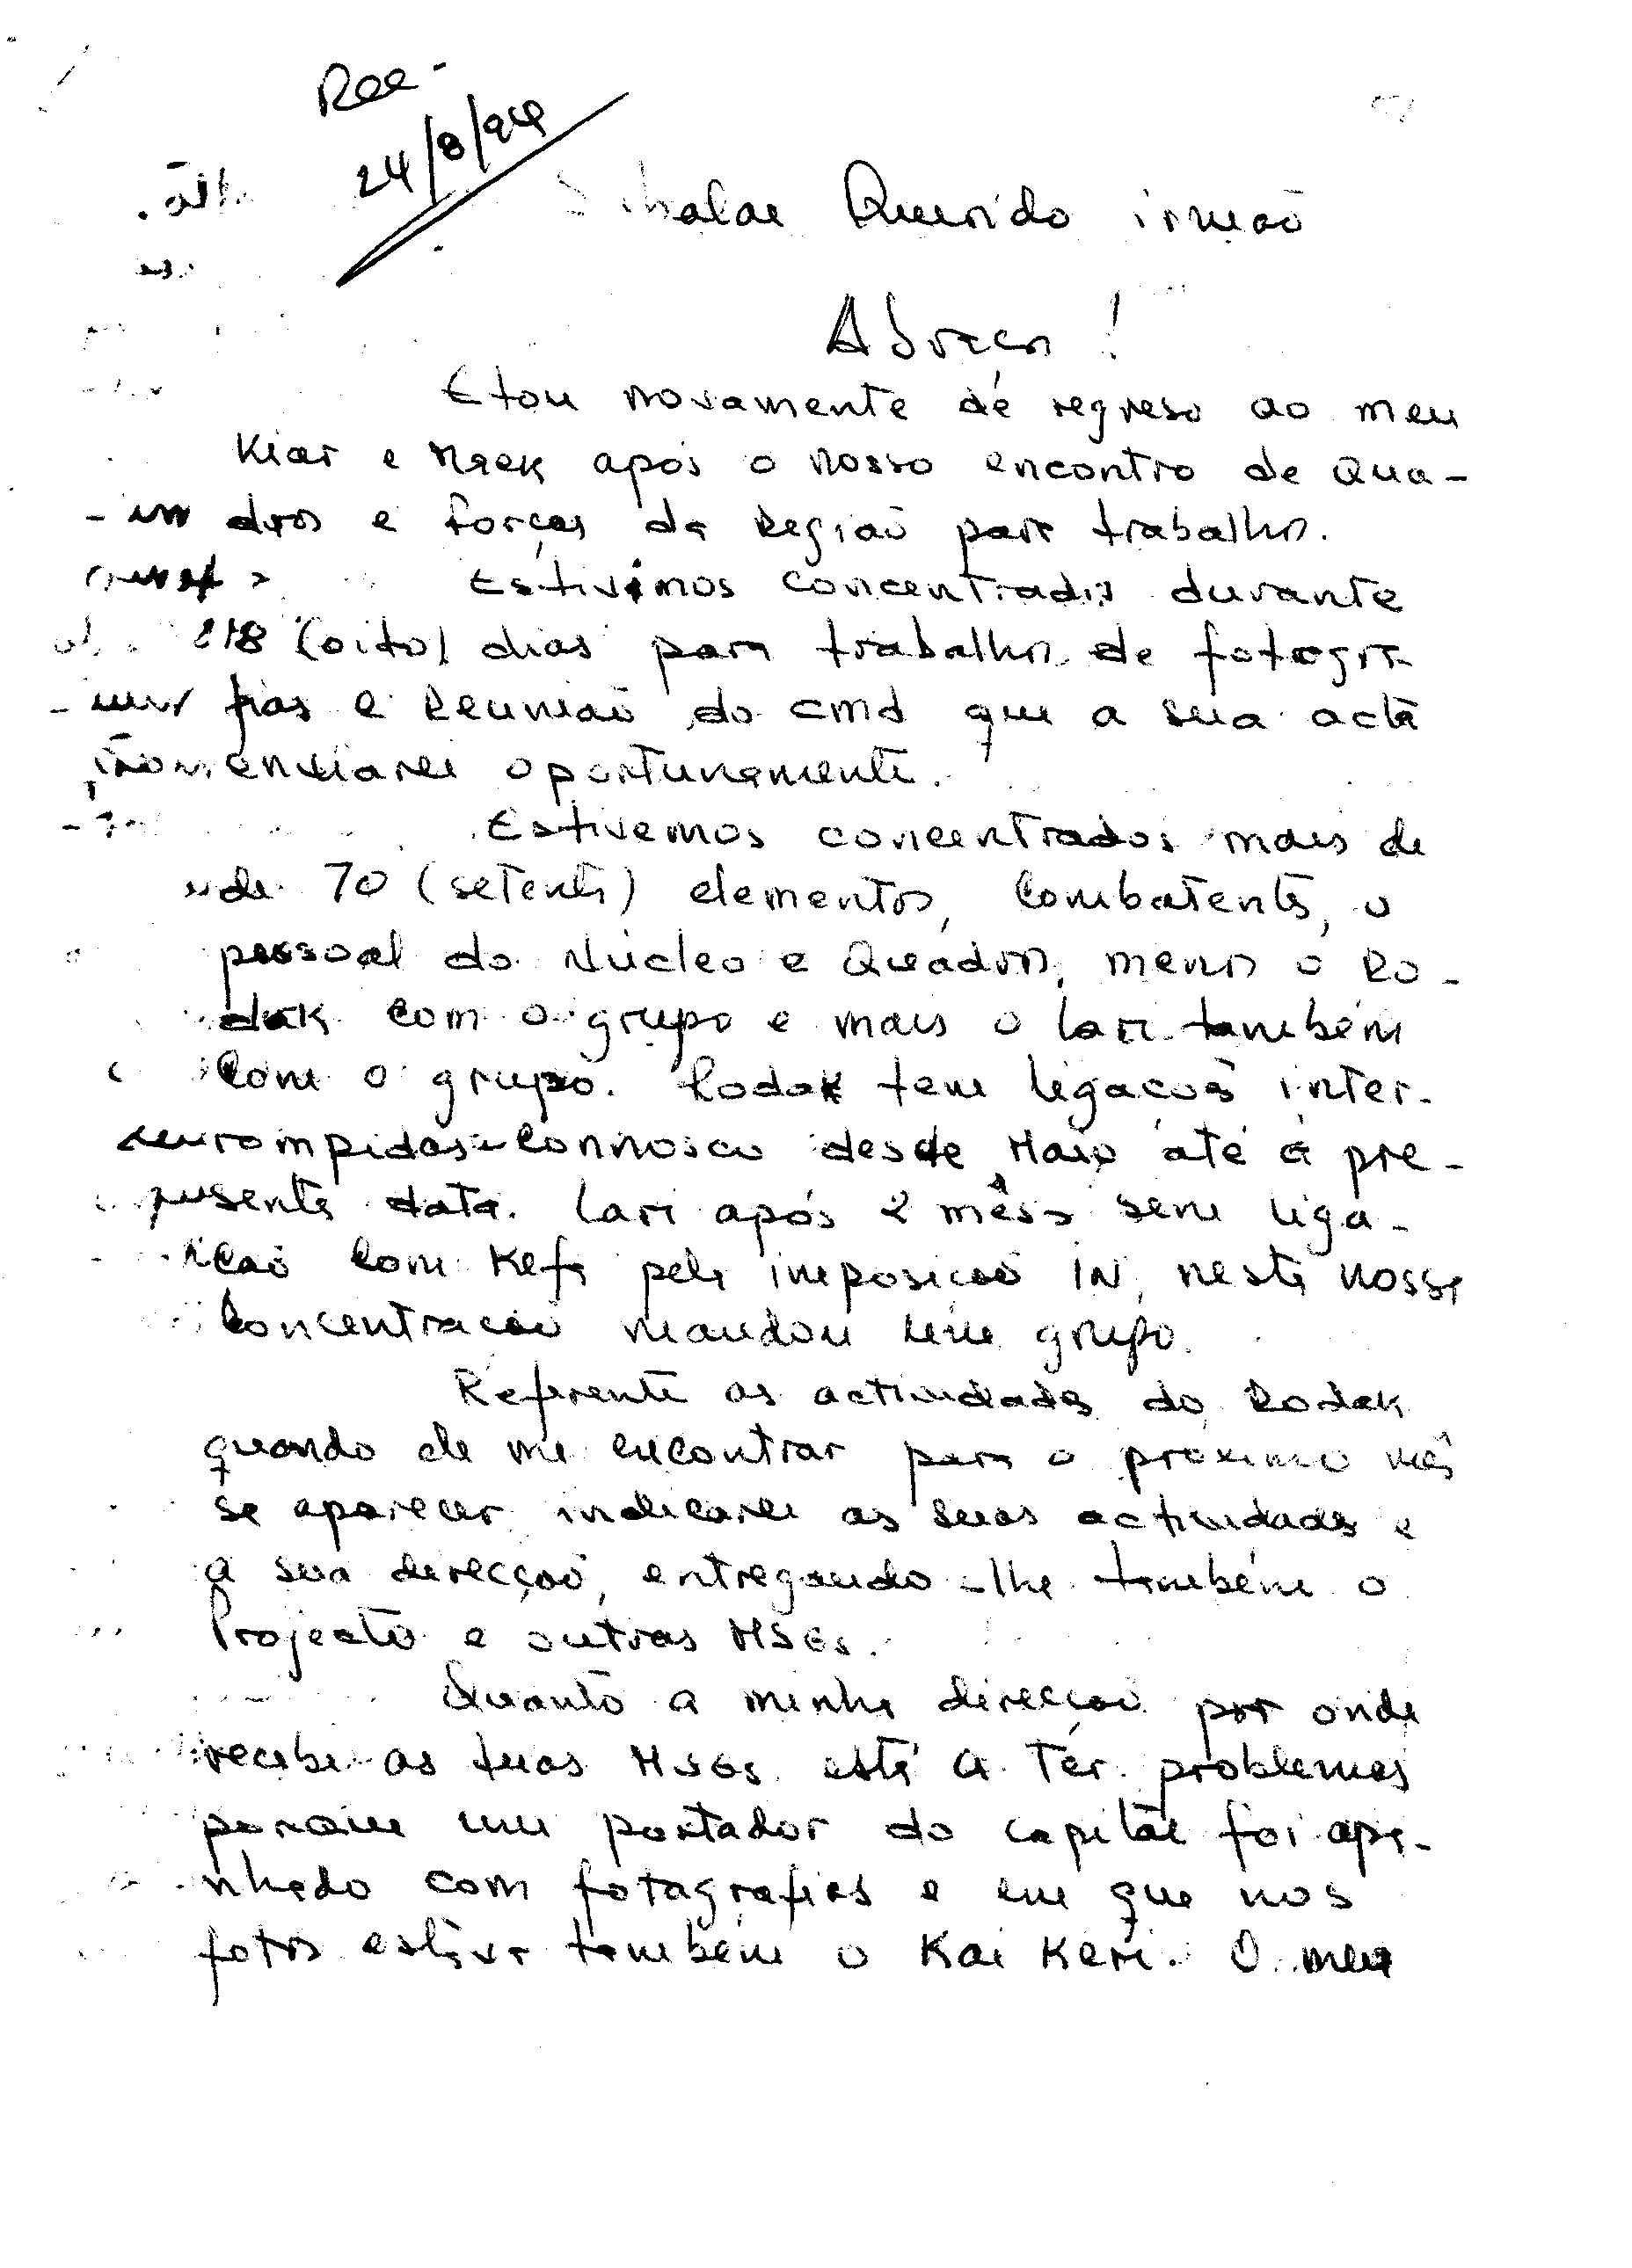 Rec-
24/8/94
Querido irmão
Abraço!
Etou novamente de regreso ao meu
Kiar e Mrek após o nosso encontro de Qua-
dros e forças da Região para trabalho.
Estivemos concentrados durante
8 (oito) dias para trabalho de fotogra-
fias e Reunião do cmd que a sua acta
enviarei oportunamente.
Estivemos concentrados mais de
70 (setenta) elementos, Combatentes, o
pessoal do Núcleo e Quadros, menos o Ro-
dak com o grupo e mais o Lari também
com o grupo. Rodak tem ligações inter-
rompidas connosco desde Maio até á pre-
sente data. Lari após 2 mêses sem liga-
ção com Kefa pela imposição IN, nesta nossa
concentração mandou um grupo.
Referente as actividades do Rodak
quando ele me encontrar para o próximo mês
se aparecer indicarei as suas actividades e
a sua direcção, entregando-lhe também o
Projecto e outras MSGs.
Quanto a minha direcção por onde
recebi as tuas MSGs está a Ter problemas
porque um portador do capitão foi apa-
nhado com fotagrafias e em que nos
fotos estava também o Kai Keri. O meu